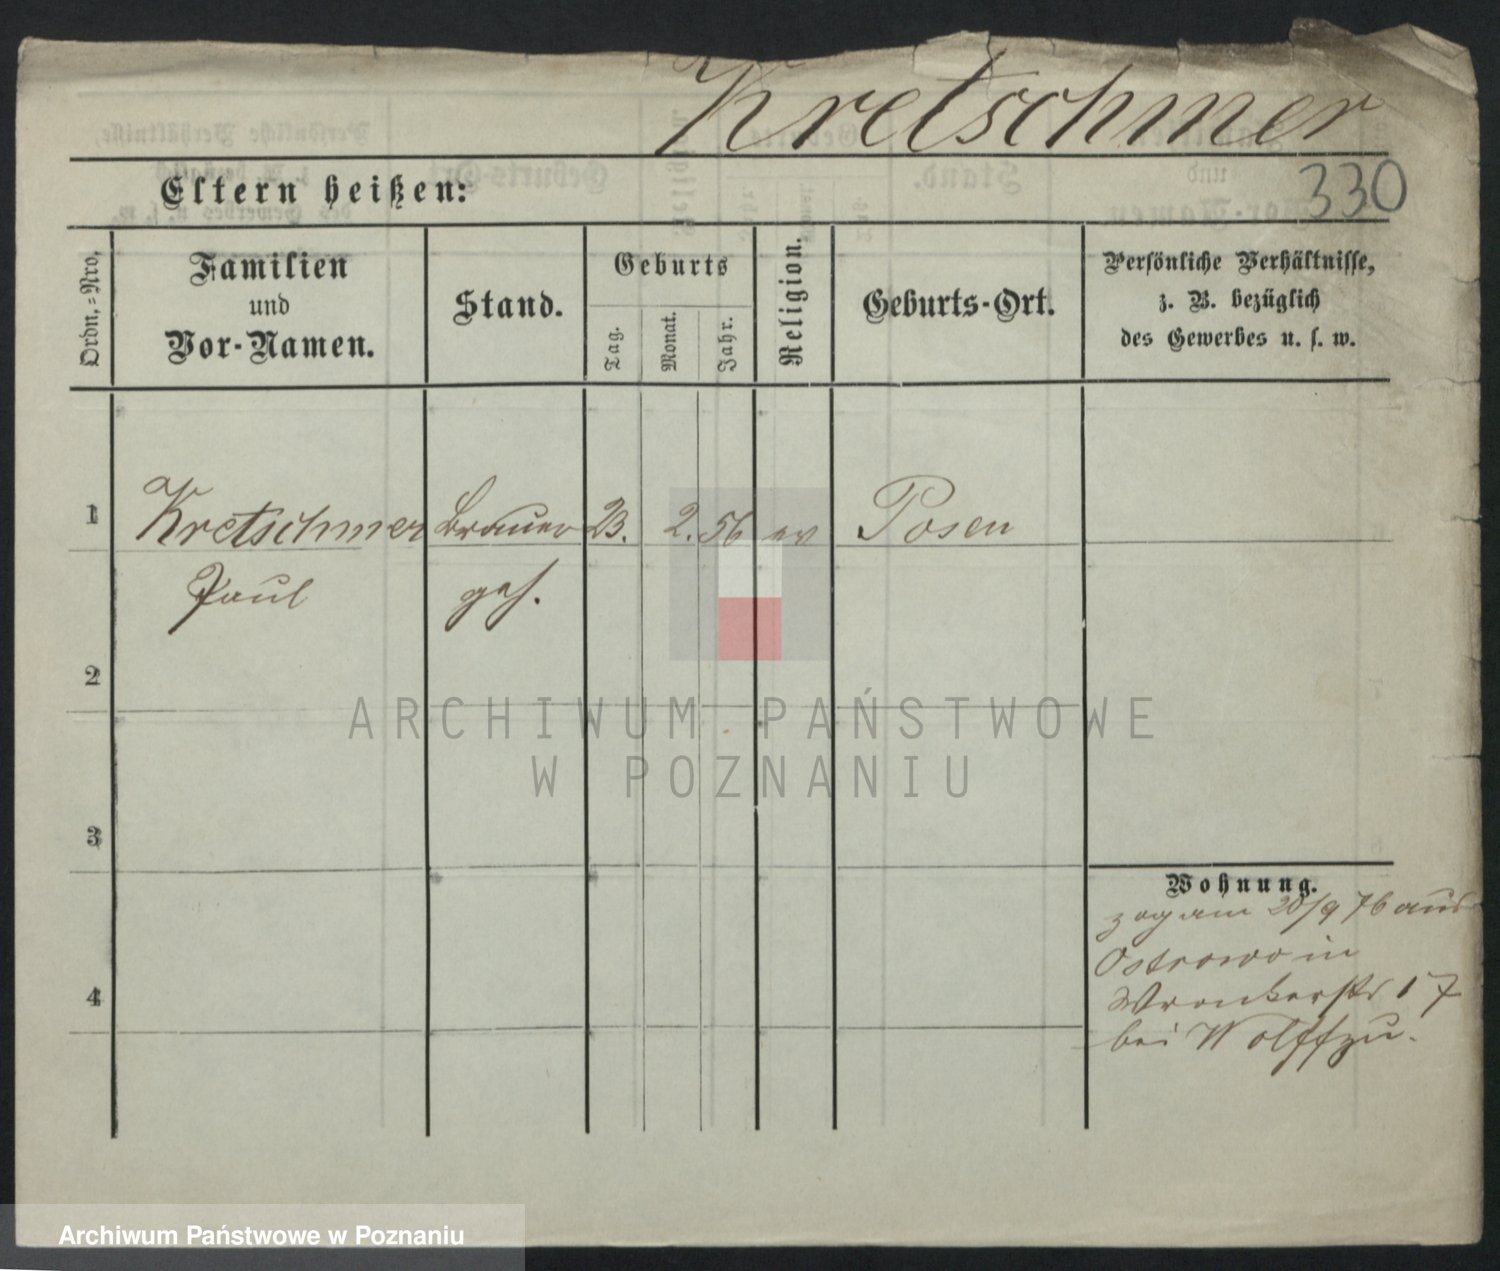 Kretschmer
330
Eltern heißen:
Ordn.=Nro.
Familien
und
Vor-Namen.
Stand.
Geburts
Tag.
Monat.
Jahr.
Religion.
Geburts-Ort.
Persönliche Verhältnisse,
z. B. bezüglich
des Gewerbes u. s. w.
1 Kretschmer Brauer 23. 2. 56 ev Posen
Paul geh.
2
3
4
Wohnung.
zog am 20/9 76 aus
Ostrowo in
Wronkerstr 17
bei Wolff zu.
ARCHIWUM PAŃSTWOWE
W POZNANIU
Archiwum Państwowe w Poznaniu